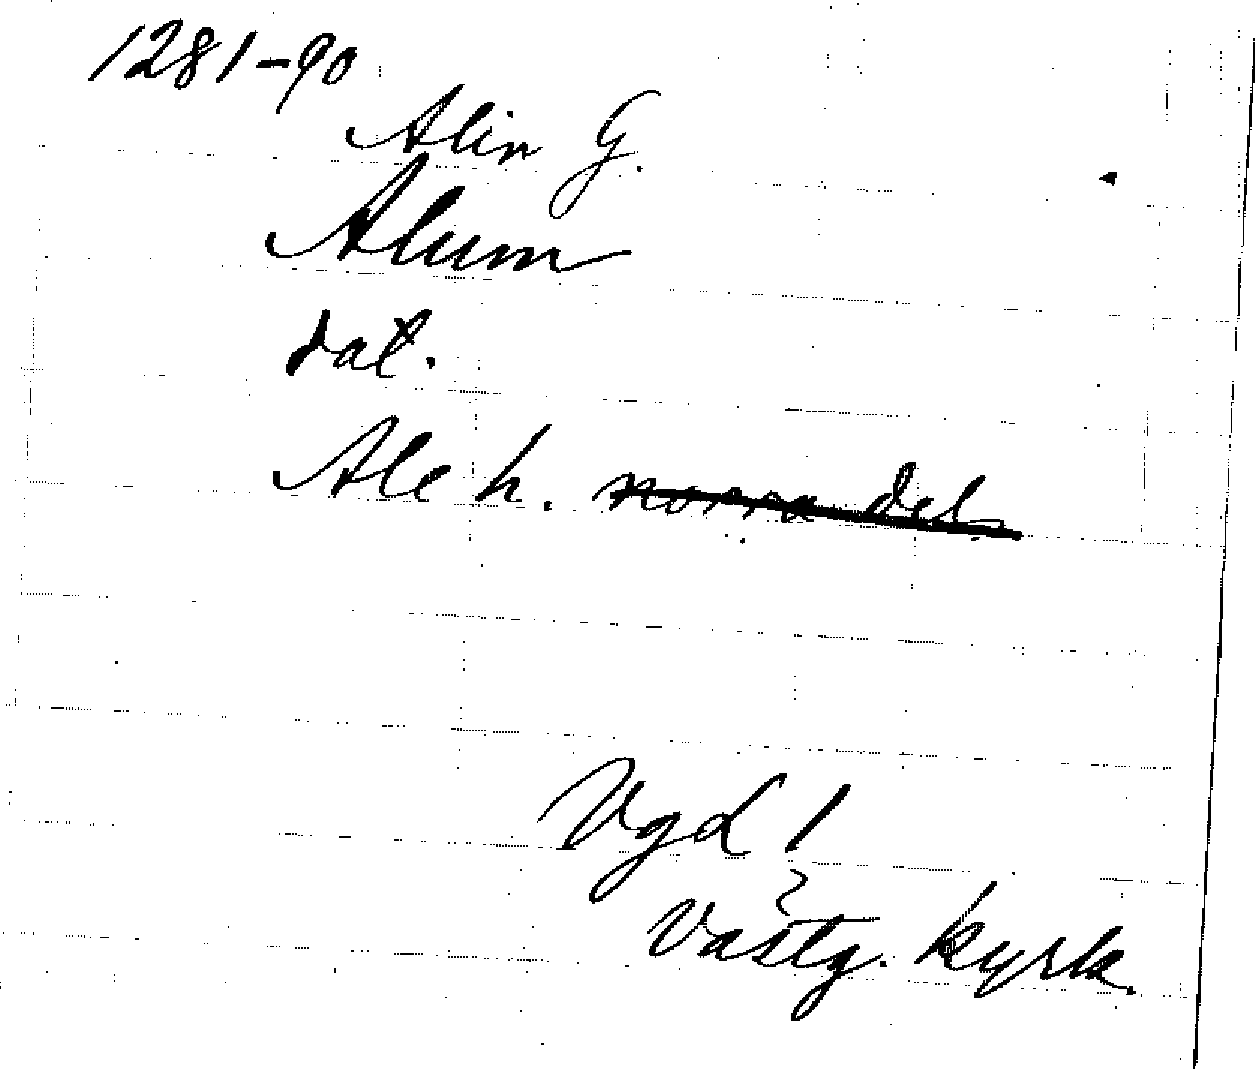 1281-90
Alin G.
Alum
dat.
Ale h. norra del
Vgd 1
Västg. kyrk.